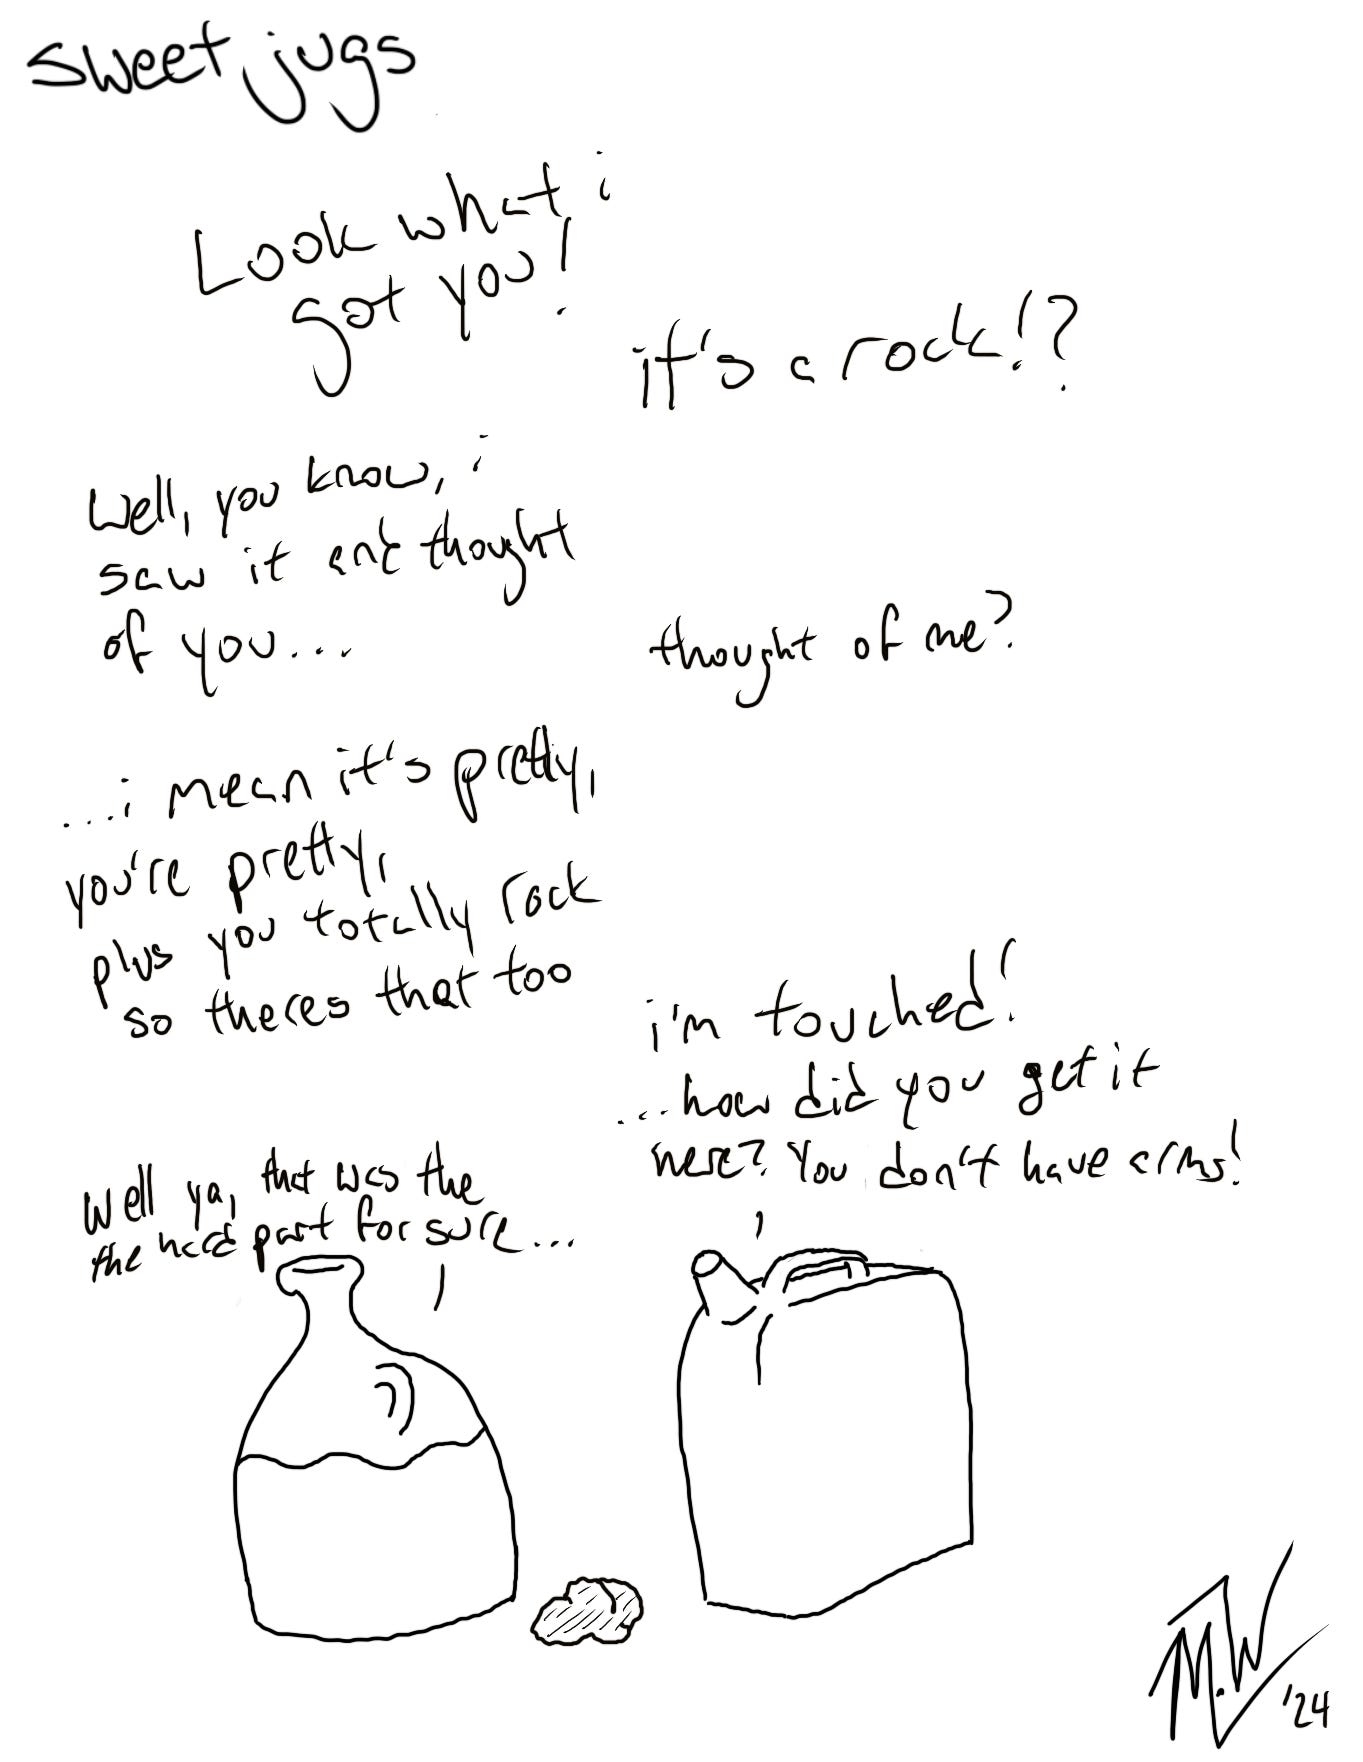 sweet jugs
Look what i
got you!
it's a rock!?
Well, you know, i
saw it and thought
of you...
thought of me?
...i mean it's pretty,
you're pretty,
plus you totally rock
so theres that too
i'm touched!
...how did you get it
here? You don't have arms!
Well ya, that was the
the hard part for sure...
M.W
'24